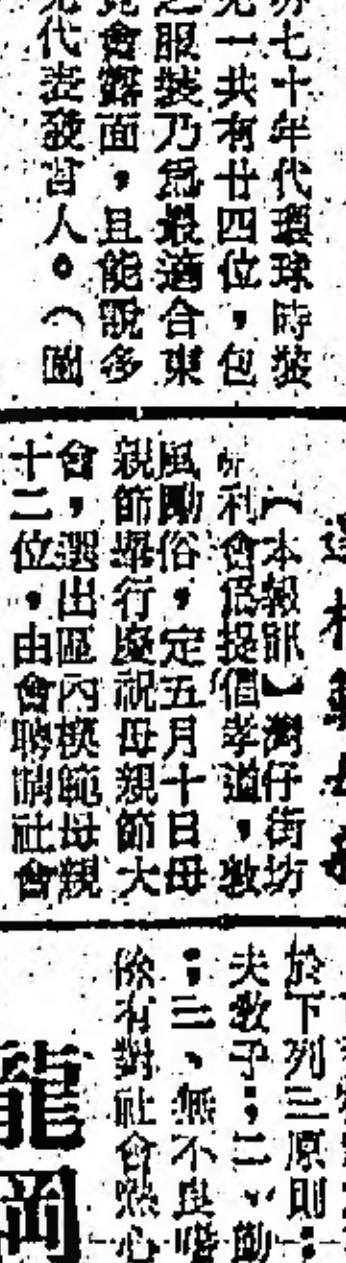 七十年代環球時裝
一共有廿四位，包
服裝乃爲最適合東
會露面，且能觀多
代表發言人。（圖
【本報訊】灣仔街坊
利會爲提倡孝道，敦
風勵俗，定五月十日母
親節舉行慶祝母親節大
會，選出區內模範母親
十二位，由會聘請社會
於下列三原則：
夫教子；二、勤
；三、無不良嗜
有對社會熱心
龍岡